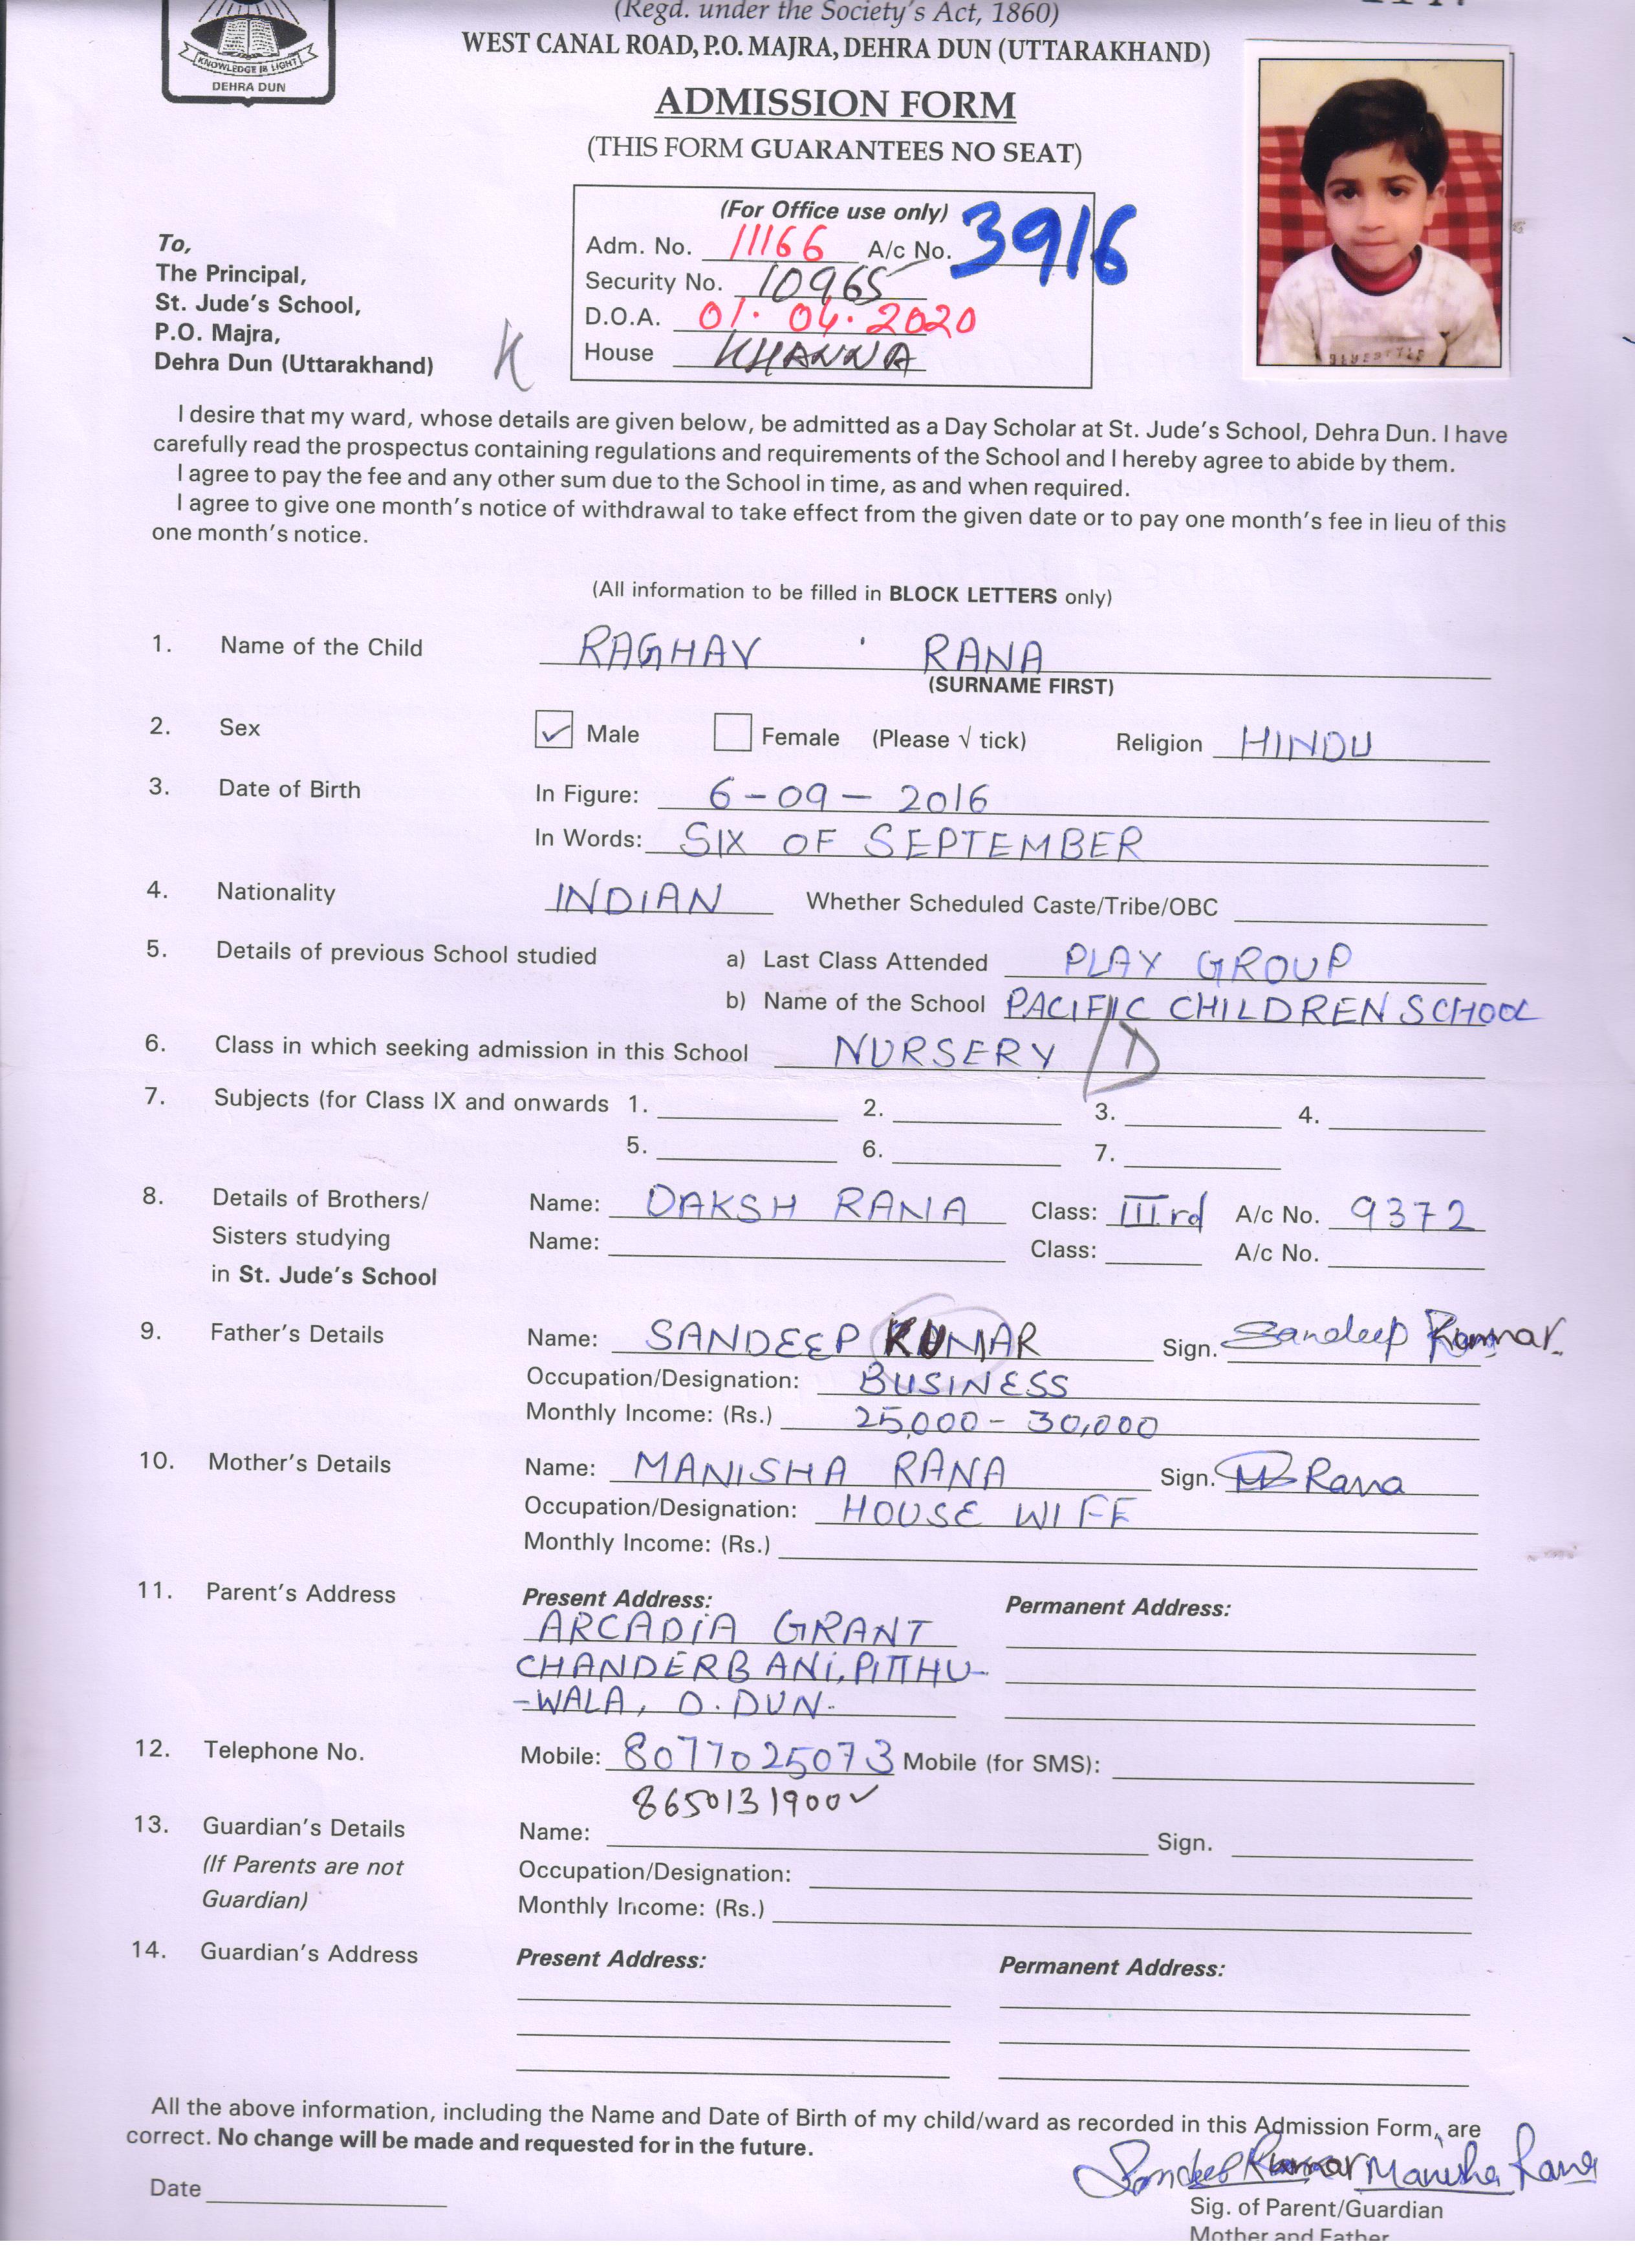 (Regd. under the Society's Act, 1860)
WEST CANAL ROAD, P.O. MAJRA, DEHRA DUN (UTTARAKHAND)
KNOWLEDGE IS LIGHT
DEHRA DUN
ADMISSION FORM
(THIS FORM GUARANTEES NO SEAT)
(For Office use only)
Adm. No. 11166 A/c No. 3916
Security No. 10965
D.O.A. 01.04.2020
House KHANNA
To,
The Principal,
St. Jude's School,
P.O. Majra,
Dehra Dun (Uttarakhand)
K
I desire that my ward, whose details are given below, be admitted as a Day Scholar at St. Jude's School, Dehra Dun. I have
carefully read the prospectus containing regulations and requirements of the School and I hereby agree to abide by them.
I agree to pay the fee and any other sum due to the School in time, as and when required.
I agree to give one month's notice of withdrawal to take effect from the given date or to pay one month's fee in lieu of this
one month's notice.
(All information to be filled in BLOCK LETTERS only)
1. Name of the Child RAGHAV RANA
(SURNAME FIRST)
2. Sex ✓ Male Female (Please √ tick) Religion HINDU
3. Date of Birth In Figure: 6-09-2016
In Words: SIX OF SEPTEMBER
4. Nationality INDIAN Whether Scheduled Caste/Tribe/OBC
5. Details of previous School studied a) Last Class Attended PLAY GROUP
b) Name of the School PACIFIC CHILDREN SCHOOL
6. Class in which seeking admission in this School NURSERY /D
7. Subjects (for Class IX and onwards 1. 2. 3. 4.
5. 6. 7.
8. Details of Brothers/ Name: DAKSH RANA Class: IIIrd A/c No. 9372
Sisters studying Name: Class: A/c No.
in St. Jude's School
9. Father's Details Name: SANDEEP KUMAR Sign. Sandeep Kumar.
Occupation/Designation: BUSINESS
Monthly Income: (Rs.) 25,000 - 30,000
10. Mother's Details Name: MANISHA RANA Sign. Rana
Occupation/Designation: HOUSE WIFE
Monthly Income: (Rs.)
11. Parent's Address Present Address: Permanent Address:
ARCADIA GRANT
CHANDERBANI, PITTHU-
-WALA, D.DUN.
12. Telephone No. Mobile: 8077025073 Mobile (for SMS):
8650131900✓
13. Guardian's Details Name: Sign.
(If Parents are not Occupation/Designation:
Guardian) Monthly Income: (Rs.)
14. Guardian's Address Present Address: Permanent Address:
All the above information, including the Name and Date of Birth of my child/ward as recorded in this Admission Form, are
correct. No change will be made and requested for in the future.
Sandeep Kumar Manisha Rana
Date
Sig. of Parent/Guardian
Mother and Father